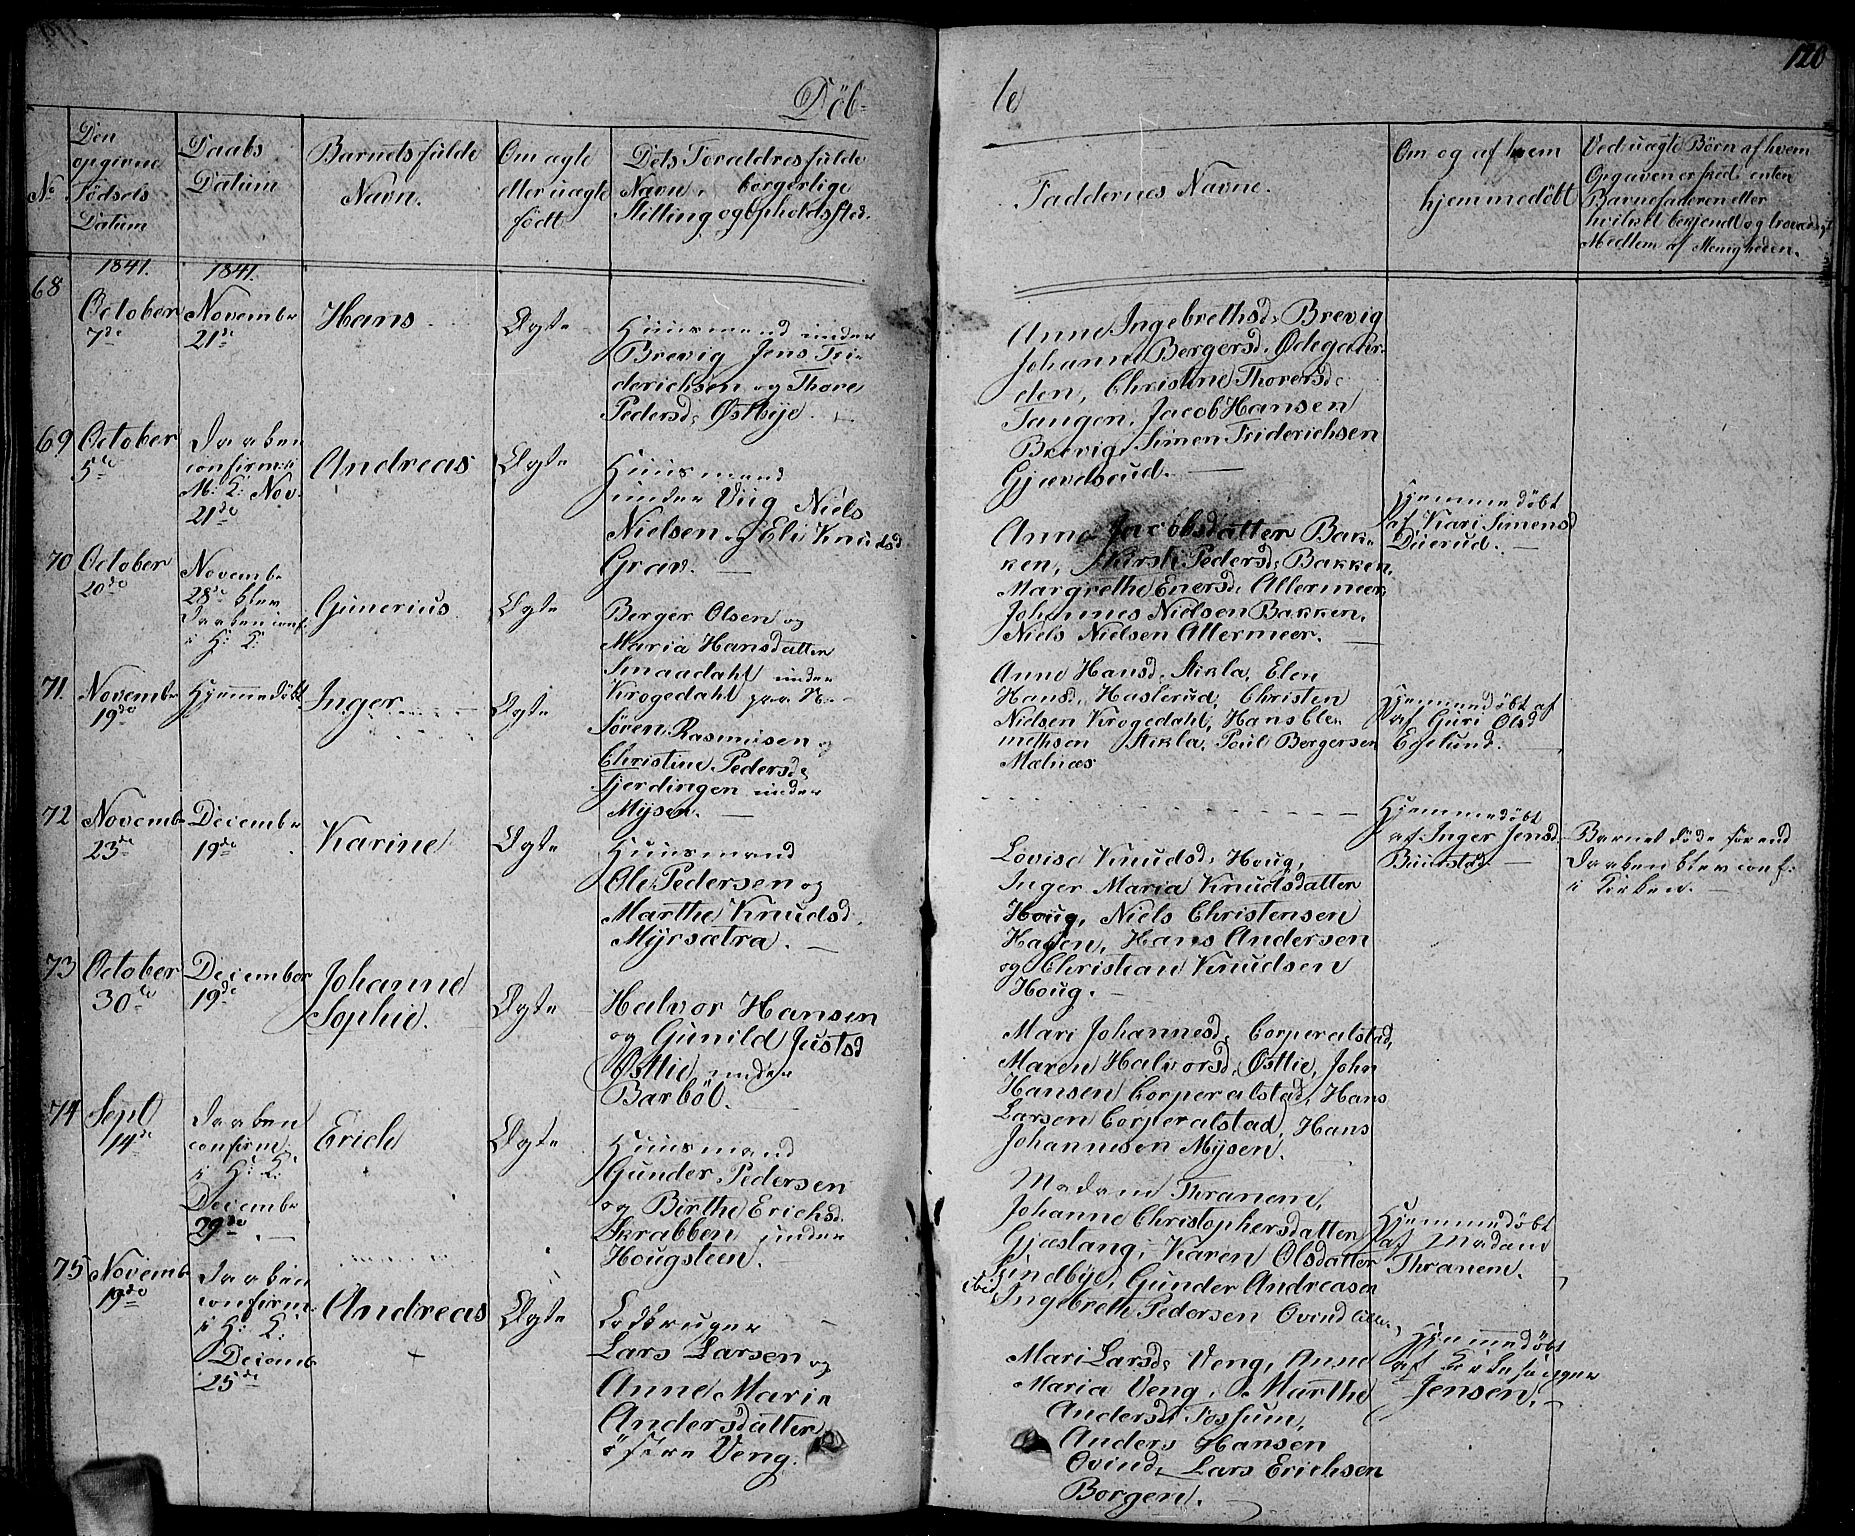 120
Døb-
te
No
Den
opgivne
Fødsels
Datum
Daabs
Datum
Barnets fulde
Navn.
Om ægte
eller uægte
født
Dets Forældres fulde
Navn, borgerlige
Stilling og Opholdssted.
Faddernes Navne.
Om og af hvem
hjemmedøbt
Ved uægte Børn af hvem
Opgaven er skeed, enten
Barnefaderen eller
hvilket bekjendt og troværdigt
Medlem af Menigheden.
1841.
1841.
68
October
7de
Novembr
21de
Hans
Ægte
Huusmand under
Brevig Jens Fri-
derichsen og Thore
Pedersd: Østbye. —
Anne Ingebrethsd: Brevig
Johanne Bergersd. Ødegaar-
den, Christine Thorersd:
Tangen, Jacob Hansen
Brevig, Simen Friderichsen
Gjævdserud. —
69
October
5te
Daaben
confirm: i
M: K: Nov.
21de
Andreas
Ægte
Huusmand
under Viig Niels
Nielsen og Eli Knudsd
Grav. —
Anne Jacobsdatter Bak-
ken, Kirsti Pedersd: Bakken,
Margrethe Enersd: Allermeer
Johannes Nielsen Bakken,
Niels Nielsen Allermeer. —
Hjemmedøbt
af Kari Simensd
Duerud. —
70
October
20de
Novembr
28de blev
Daaben conf:
i H: K:
Gunerius
Ægte
Berger Olsen og
Maria Hansdatter
Smaadahl under
Krogedahl paa N. —
Anne Hansd. Stikla, Elen
Hansd, Haslerud, Christen
Nielsen Krogedahl, Hans Cle-
methsen Stikla, Poul Bergersen
Malnæs
Hjemmedøbt af
af Guri Olsd
Egelund. —
71.
Novembr
19de
Hjemmedøbt
Inger
Ægte
Søren Rasmusen og
Christine Pedersd:
Fjerdingen under
Mysen. —
Hjemmedøbt
af: Inger Jensd.
Buerstad —
Barnet døde førend
Daaben blev conf:
i Kirken. —
72
Novembr
23de
Decembr
19de
Karine
Ægte
Huusmand
Ole Pedersen og
Marthe Knudsd.
Myrsætra. —
Lovise Knudsd: Houg,
Inger Maria Knudsdatter
Houg, Niels Christensen
Hagen, Hans Andersen
og Christian Knudsen
Houg. —
73
October
30te
December
19de
Johanne
Sophie.
Ægte
Halvor Hansen
og Gunild Justsd
Østlie under
Barbøl. —
Mari Johannesd: Corperalstad,
Maren Halvorsd: Østlie, John
Hansen Corperalstad, Hans
Larsen Corperalstad, Hans
Johannesen Mysen.
74
Sept
14de
Daaben
confirm.
i H: K:
Decembr
29de —
Erich
Ægte
Huusmand
Gunder Pedersen
og Birthe Erichsd.
Skrabben under
Hougsteen. —
Madam Thranem,
Johanne Christophersdatter
Gjæstang, Karen Olsdatter
Lindbye, Gunder Andreasen
ibid, Ingebreth Pedersen Ovind
Hjemmedøbt
af Madam
Thranem.
75
Novembr
19de
Daaben
confirm:
i H: K:
Decemb
25de
Andreas
Ægte
Lars Larsen og
Anne Marie
Andersdatter
østre Veng.
Mari Larsd: Veng, Anne
Maria Veng, Marthe
Andersd Fossum,
Anders Hansen
Ovind, Lars Erichsen
Borgen.
Hjemmedøbt
af Kirkesanger
Jensen. —